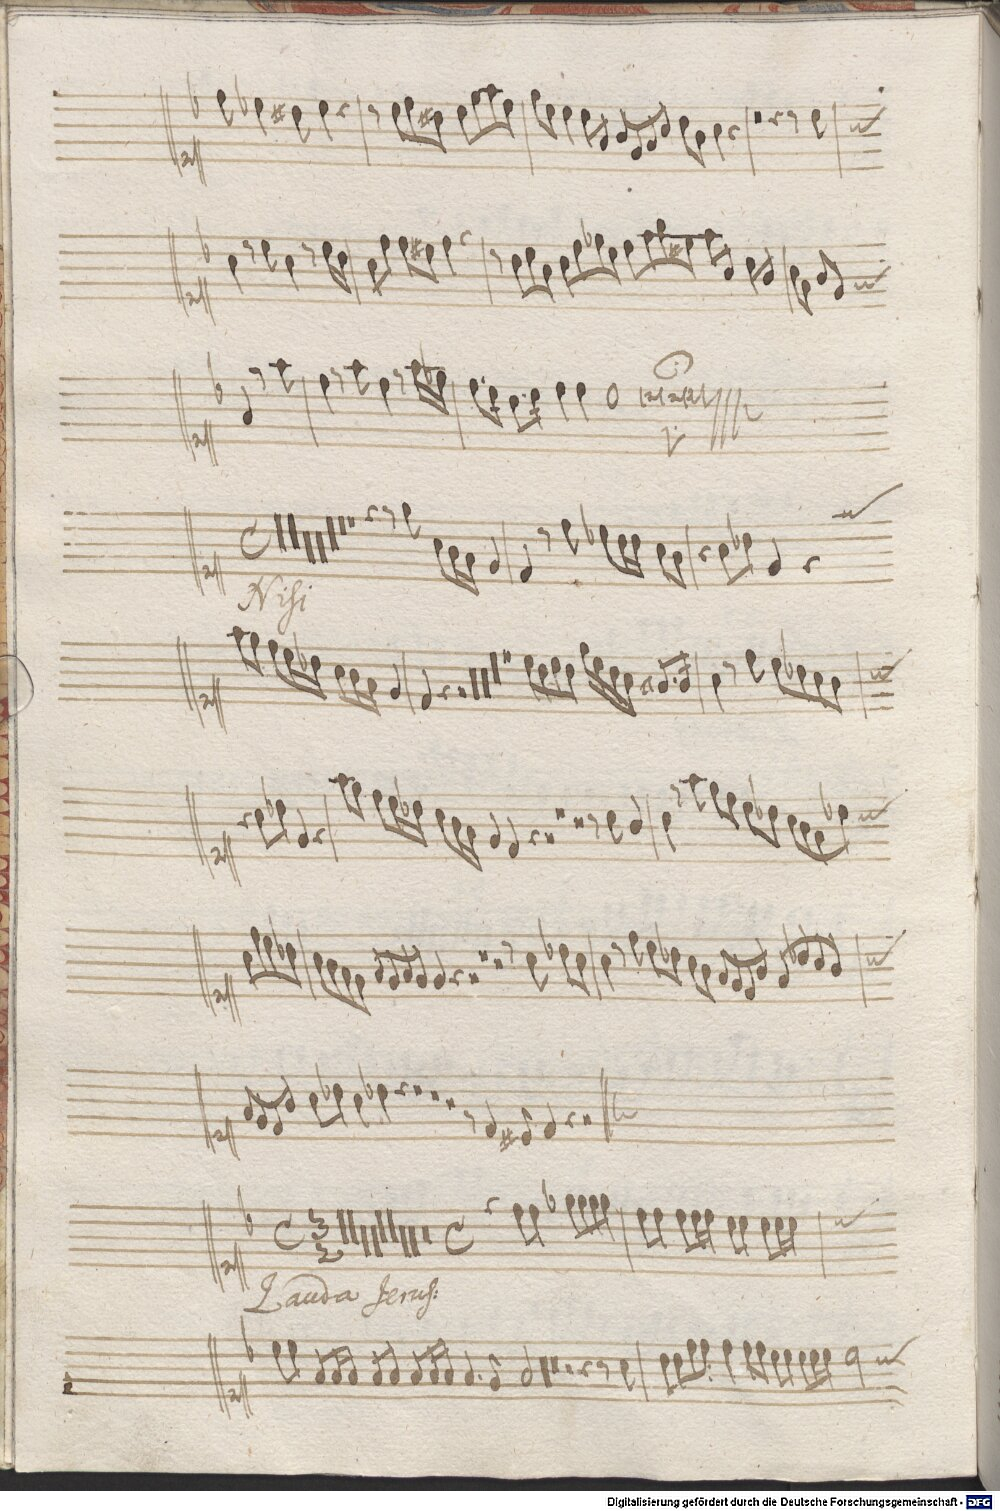 Nisi
Lauda Jerus:
Digitalisierung gefördert durch die Deutsche Forschungsgemeinschaft - DFG